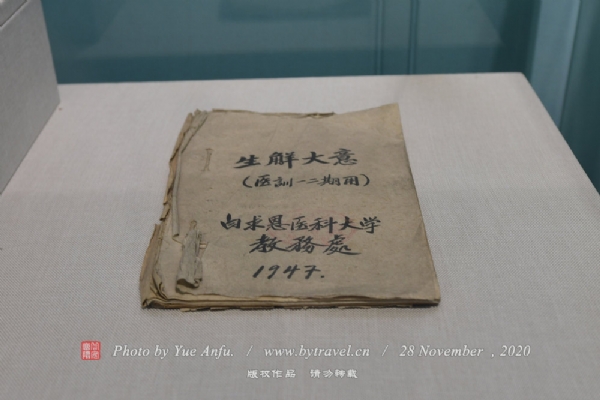 生解大意
(医訓一二期用)
白求恩医科大学
教務處
1947.
Photo by Yue Anfu. / www.bytravel.cn / 28 November , 2020
版权作品 请勿转载